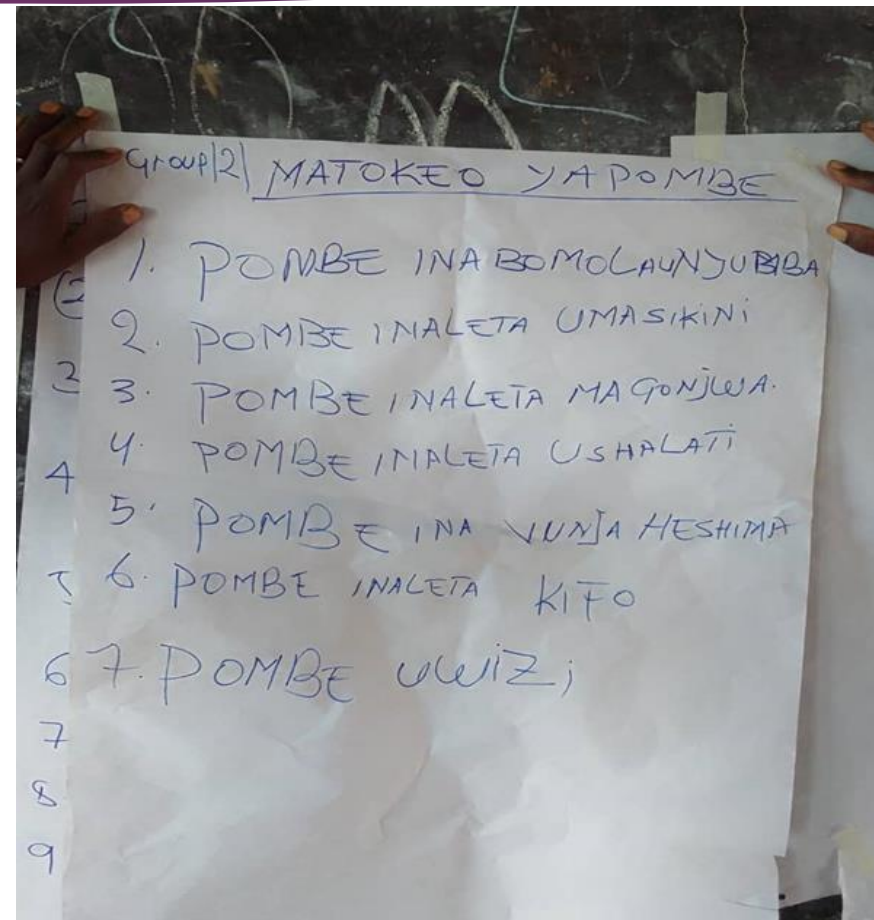 Group|2| MATOKEO YA POMBE
1. POMBE INA BOMOLAUNJUBABA
2. POMBE INALETA UMASIKINI
3. POMBE INALETA MAGONJWA.
4. POMBE INALETA USHALATI
5. POMBE INA VUNJA HESHIMA
6. POMBE INALETA KIFO
7. POMBE UWIZI
2
3
4
5
6
7
8
9